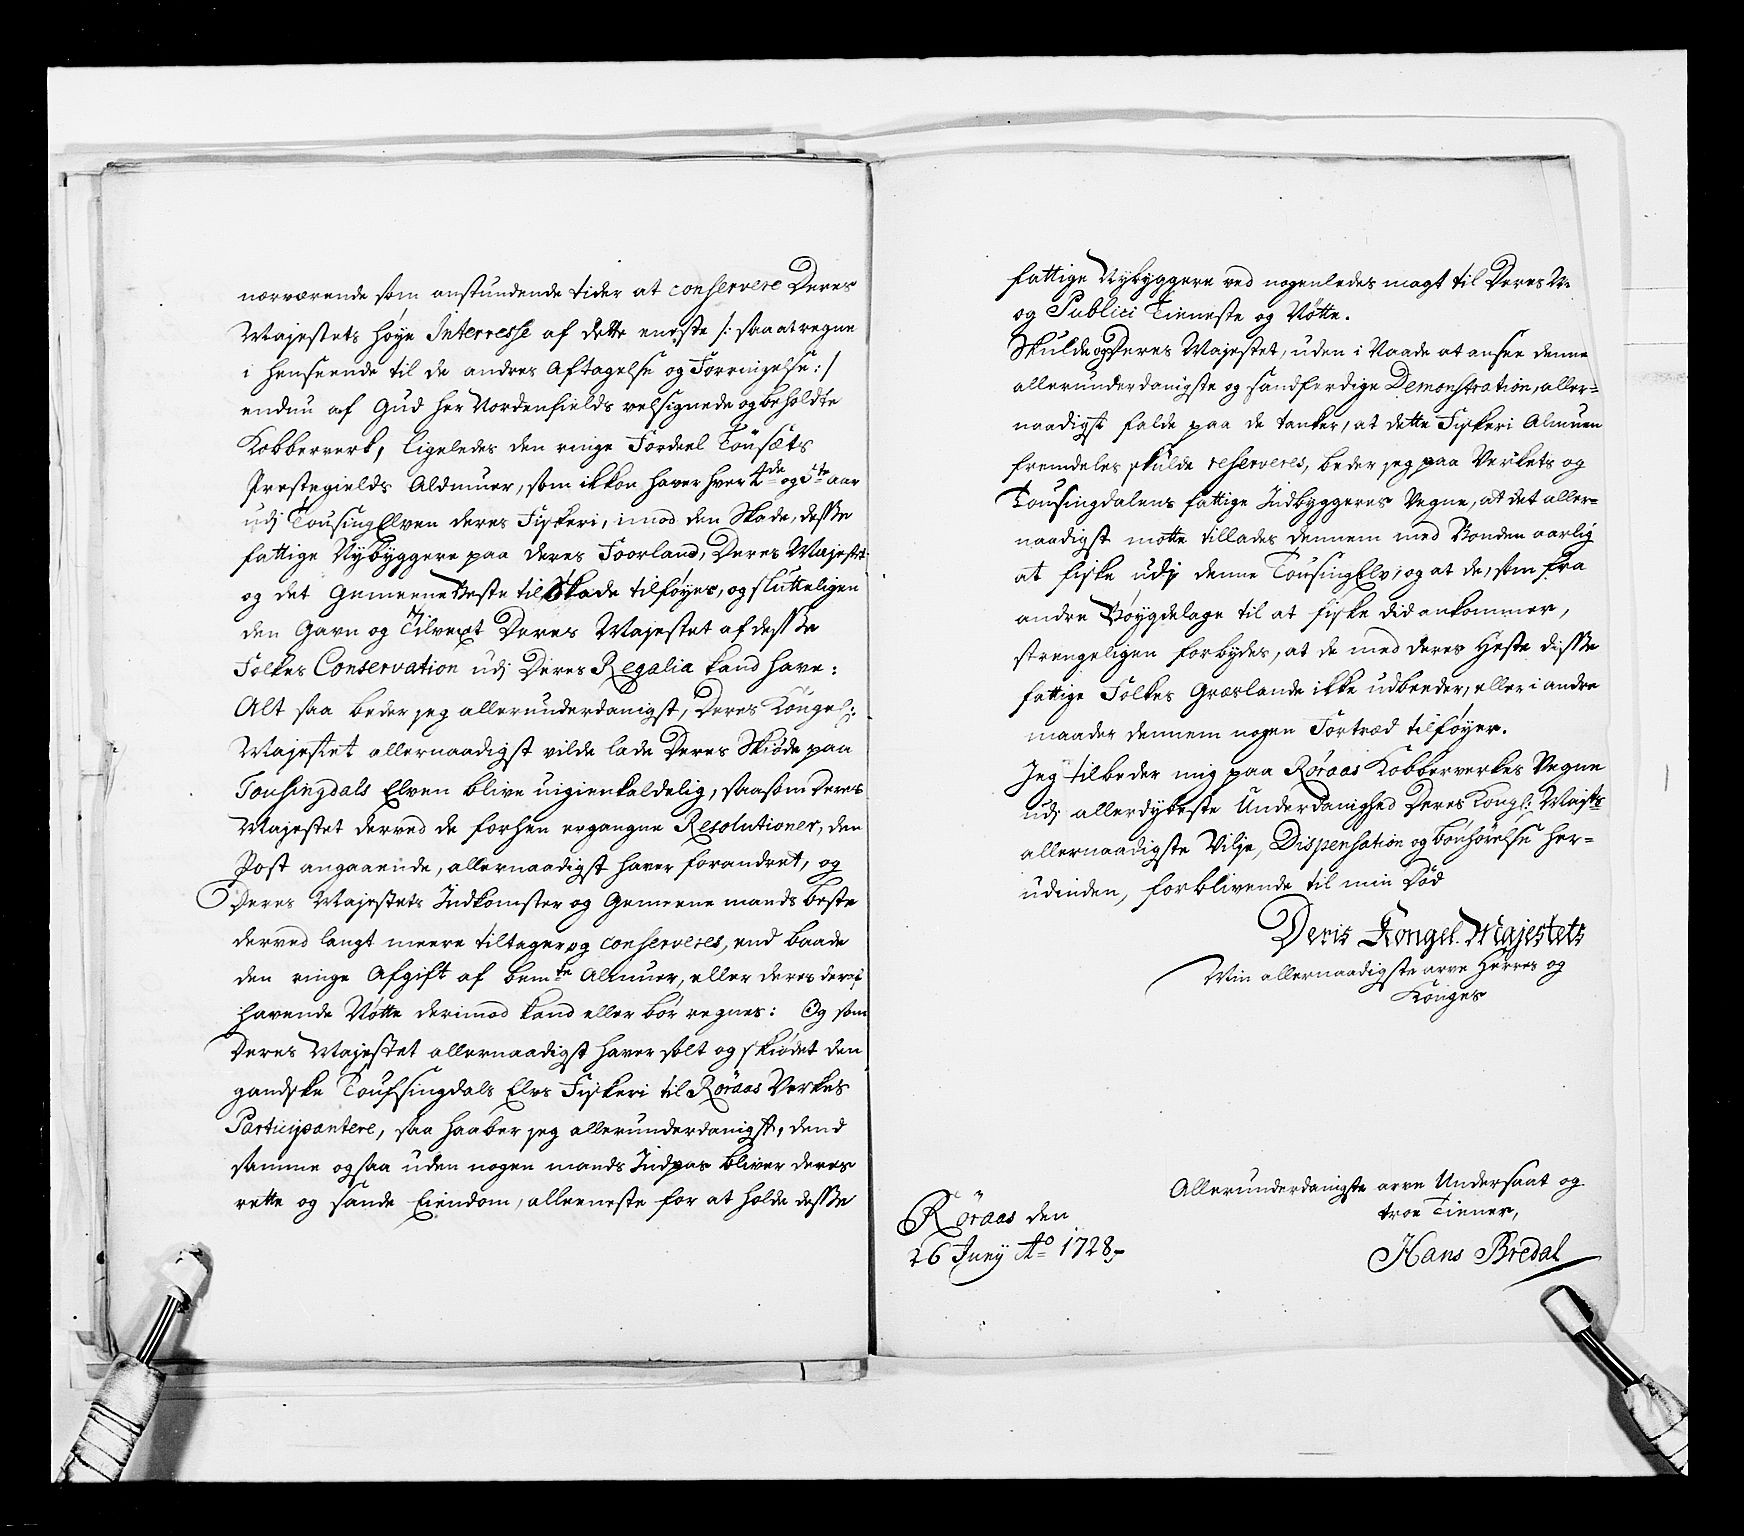 nærværende som anstundende tider at conservere Deres
Majestets høye Interresse af dette eneste /: saa at regne
i henseende til de andres Aftagelse og Forringelse :/
endnu af Gud her Nordenfields velsignede og beholdte
Kobberverk, ligeledes den ringe Fordeel Tønsæts
Prestegields Aldmuer, som ikkon haver hver 4de og 5te aar
udj TousingElven deres Fiskeri, imod den Skade, desse
fattige Nybyggere paa deres Foorland, Deres Majestet
og det Gemeene Beste til Skade tilføyes, og slutteligen
den Gavn og Tilvext Deres Majestet af desse
Folkes Conservation udj Deres Regalia kand have:
Alt saa beder jeg allerunderdanigst, Deres Kongel:
Majestet allernaadigst vilde lade Deres Skiøde paa
Tousingdals Elven blive uigienkaldelig, saasom Deres
Majestet derved de forhen ergangne Resolutioner, den
Post angaaende, allernaadigst haver forandret, og
Deres Majestets Indkomster og Gemeene mands beste
derved langt meere tiltager og conserveres, end baade
den ringe Afgift af bemte Almuer, eller deres deraf
havende Nøtte derimod kand eller bør regnes: Og som
Deres Majestet allernaadigst haver solt og skiødet den
gandske Toufsingdals Elvs Fiskeri til Røraas Verkes
Participantere, saa haaber jeg allerunderdanigst, dend
samme ogsaa uden nogen mands Indpas bliver deres
rette og sande Eiendom, alleeneste for at holde desse
fattige Nybyggere ved nogenledes magt til Deres M:
og Publici Tieneste og Nøtte.
Skulde og Deres Majestet, uden i Naade at ansee denne
allerunderdanigste og sandferdige Demonstration, aller=
naadigst falde paa de tanker, at dette Fiskeri Almuen
fremdeles skulde reserveres, beder jeg paa Verkets og
Tousingdalens fattige Indbyggeres Vegne, at det aller=
naadigst motte tillades dennem med Bonden aarlig
at fiske udj denne TousingElv; og at de, som fra
andre Bøygdelage til at fiske did ankommer,
strengeligen forbydes, at de med deres Heste disse
fattige Folkes Græslande ikke udbeeder, eller i andre
maader dennem nogen Fortræd tilføyer.
Jeg tilbeder mig paa Røraas Kobberverkes Vegne
udj allerdybeste Underdanighed Deres Kongl: Majsts
allernaadigste Vilje, Dispensation og bønhørelse her=
udinden, forblivende til min Død
Deris Kongel. Majestets
Min allernaadigste arve Herres og
Konges
Allerunderdanigste arve Undersaat og
troe Tiener,
Hans Bredal
Røraas den
26 Junij Ao 1728,-